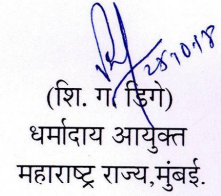 २८.१०.१८
(शि. ग. डिगे)
धर्मादाय आयुक्त
महाराष्ट्र राज्य,मुंबई.